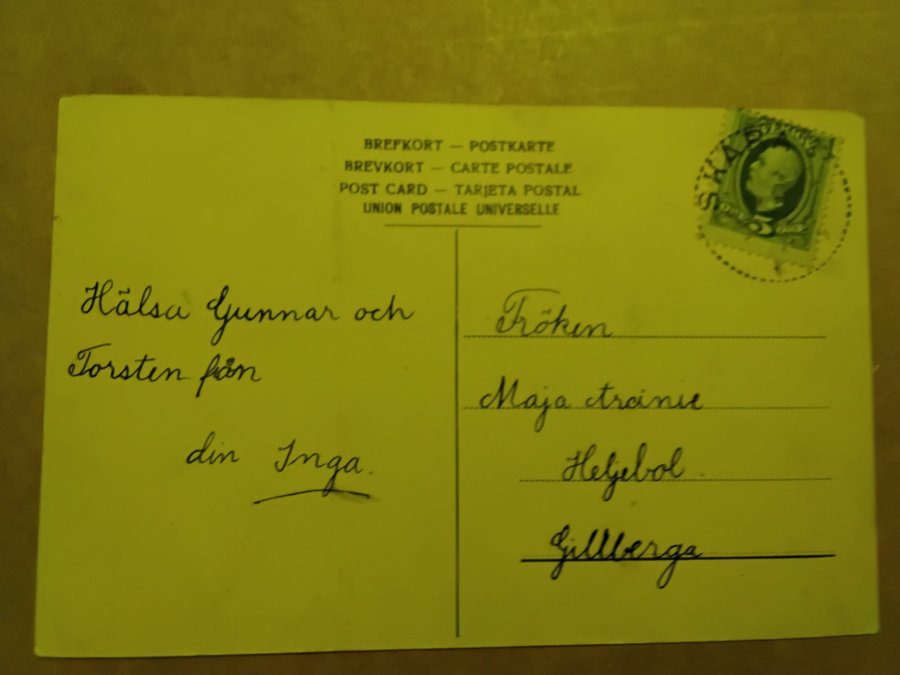 BREFKORT — POSTKARTE
BREVKORT — CARTE POSTALE
POST CARD — TARJETA POSTAL
UNION POSTALE UNIVERSELLE
Hälsa Gunnar och
Torsten från
din Inga.
5
Fröken
Maja
Heljebol
Gillberga